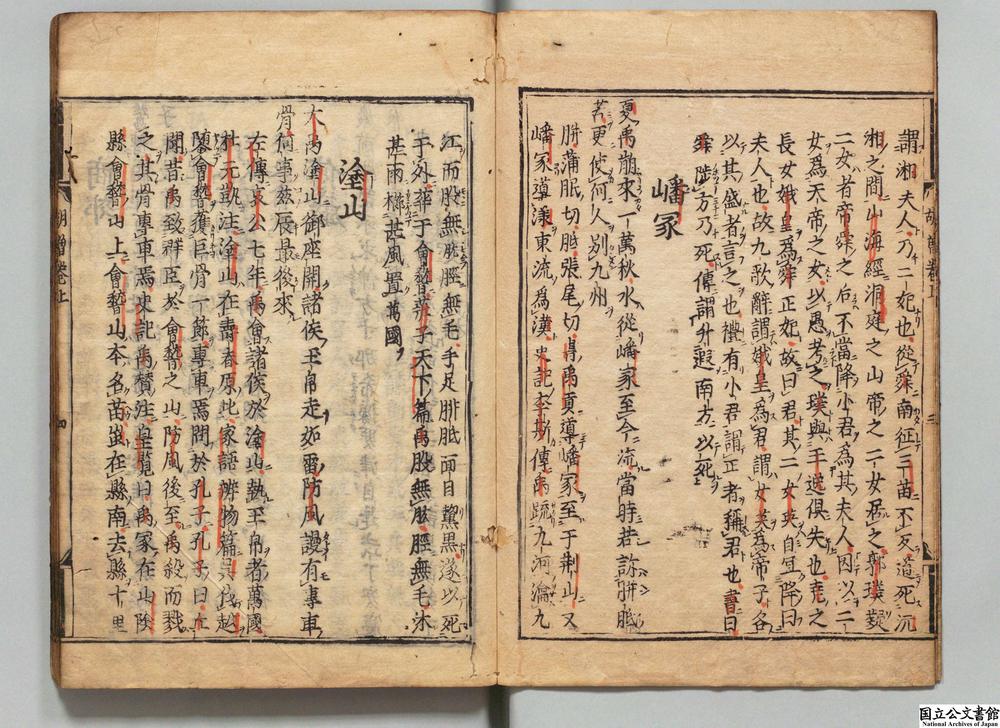 謂湘夫人乃二妃也從舜南征三苗不反道死沉
湘之間山海經洞庭之山帝之二女居之郭璞疑
二女者帝舜之后不當降小君為其夫人因以二
女為天帝之女以愚考之璞與王逸俱失也堯之
長女娥皇為舜正妃故曰君其二女英自宜降曰
夫人也故九歌辭謂娥皇為君謂女英為帝子各
以其盛者言之也禮有小君謂正者稱君也書曰
舜陟方乃死傳謂升遐南方以死
嶓冢
夏禹崩來一萬秋水從嶓冢至今流當時若訴胼胝
苦更使何人別九州
胼蒲眠切胝張尾切得禹貢導嶓冢至于荆山又
嶓冢導漾東流為漢史記李斯傳禹疏九河瀹九
江而股無胈脛無毛手足胼胝面目黧黑遂以死
于外葬于會稽莊子天下篇禹股無胈脛無毛沐
甚雨櫛甚風置萬國
塗山
大禹塗山御座開諸侯玉帛走如雷防風謾有專車
骨何事茲辰最後來
左傳哀公七年禹會諸侯於塗山執玉帛者萬國
杜元凱注塗山在壽春原北家語辨物篇吳伐越
隳會稽獲巨骨一節專車焉問於孔子孔子曰丘
聞昔禹致群臣於會稽之山防風後至禹殺而戮
之其骨專車焉史記禹贊注皇覽曰禹冢在山陰
縣會稽山上會稽山本名苗山在縣南去縣十里
胡曾卷上
三
胡曾卷上
四
国立公文書館
National Archives of Japan